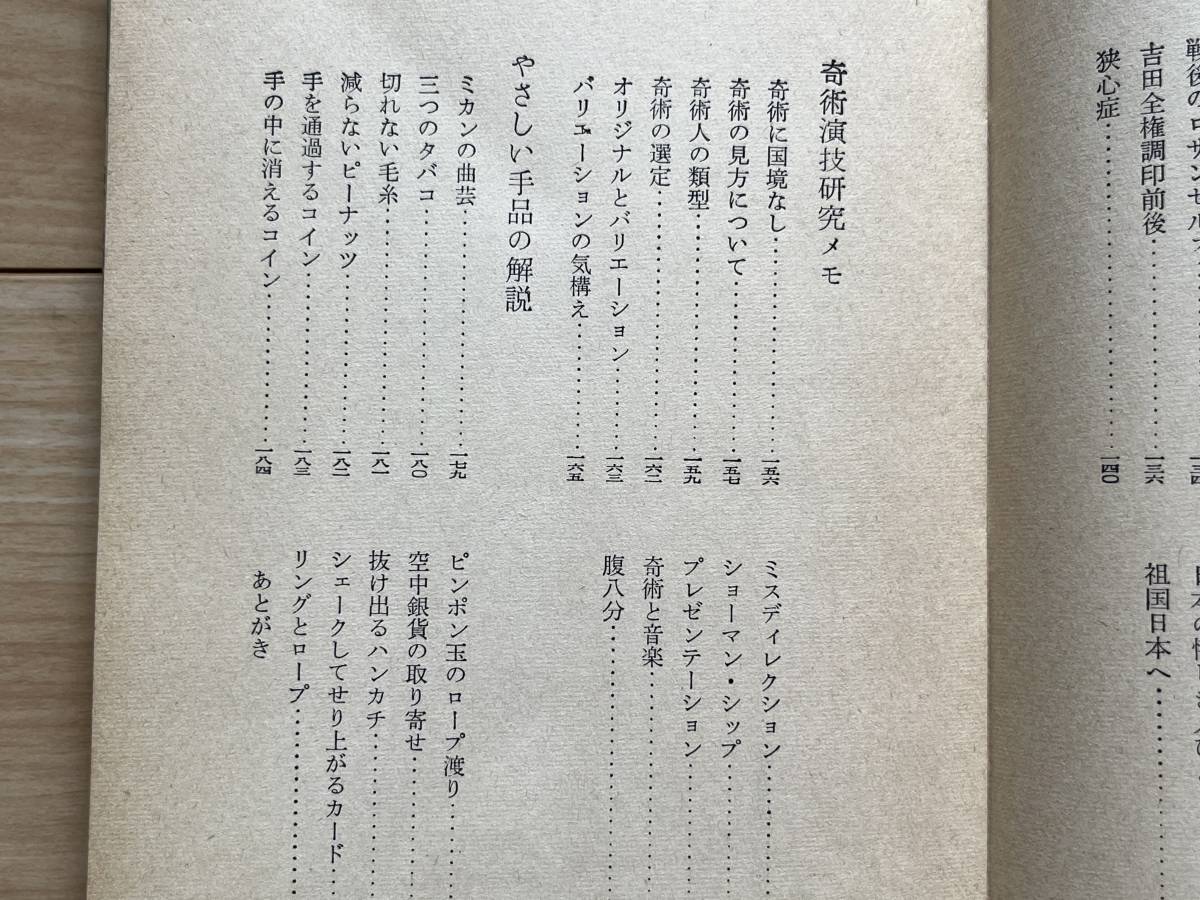 吉田全権調印前後……………一三六
狭心症……………一四〇
祖国日本へ……………
奇術演技研究メモ
奇術に国境なし……………一五六
奇術の見方について……………一五七
奇術人の類型……………一五九
奇術の選定……………一六二
オリジナルとバリエーション……………一六三
バリエーションの気構え……………一六五
ミスディレクション……………
ショーマン・シップ……………
プレゼンテーション……………
奇術と音楽……………
腹八分……………
やさしい手品の解説
ミカンの曲芸……………一七九
三つのタバコ……………一八〇
切れない毛糸……………一八一
減らないピーナッツ……………一八二
手を通過するコイン……………一八三
手の中に消えるコイン……………一八四
ピンポン玉のロープ渡り……………
空中銀貨の取り寄せ……………
抜け出るハンカチ……………
シェークしてせり上がるカード……………
リングとロープ……………
あとがき